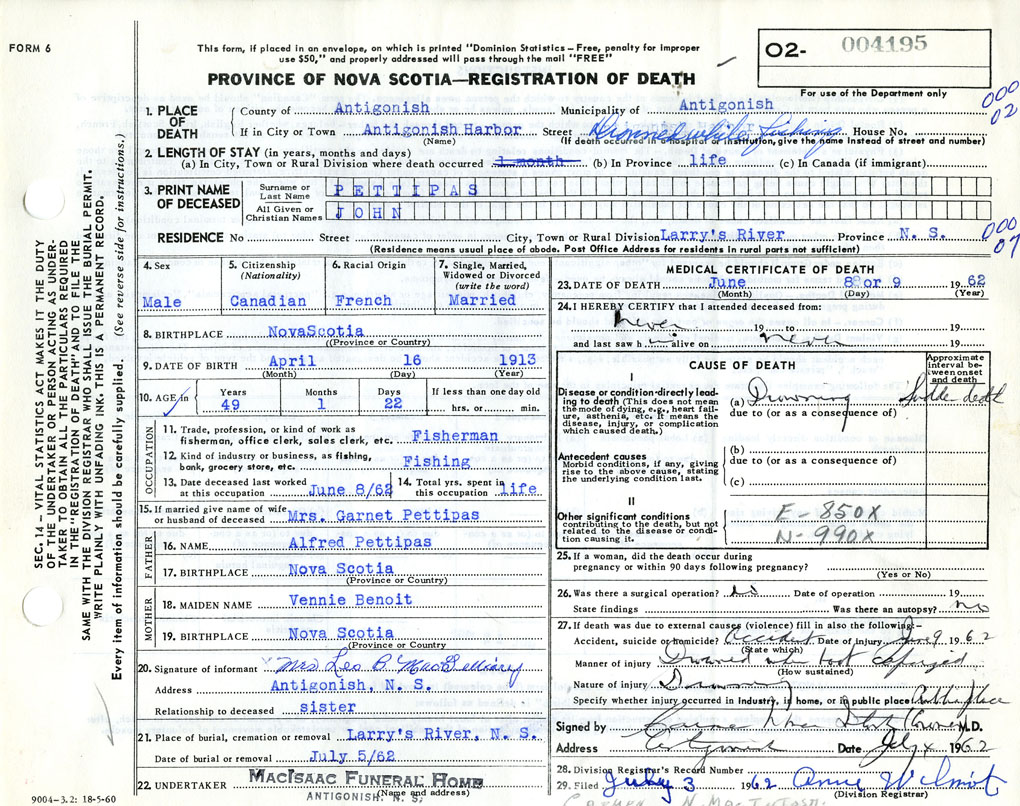 FORM 6
This form, if placed in an envelope, on which is printed "Dominion Statistics – Free, penalty for improper
use $50," and properly addressed will pass through the mail "FREE"
O2- 004195
For use of the Department only
PROVINCE OF NOVA SCOTIA—REGISTRATION OF DEATH
000
02
1. PLACE OF DEATH
County of Antigonish Municipality of Antigonish
If in City or Town Antigonish Harbor Street Drowned while fishing House No.
(Name) (If death occurred in a hospital or institution, give the name instead of street and number)
2. LENGTH OF STAY (in years, months and days)
(a) In City, Town or Rural Division where death occurred 1 month (b) In Province life (c) In Canada (if immigrant)
3. PRINT NAME OF DECEASED
Surname or Last Name PETTIPAS
All Given or Christian Names JOHN
RESIDENCE No Street City, Town or Rural Division Larry's River Province N. S.
(Residence means usual place of abode. Post Office Address for residents in rural parts not sufficient)
000
07
4. Sex
Male
5. Citizenship (Nationality)
Canadian
6. Racial Origin
French
7. Single, Married, Widowed or Divorced (write the word)
Married
8. BIRTHPLACE NovaScotia
((Province or Country)
9. DATE OF BIRTH April 16 1913
(Month) (Day) (Year)
10. AGE in Years 49 Months 1 Days 22 If less than one day old hrs. or min.
OCCUPATION
11. Trade, profession, or kind of work as fisherman, office clerk, sales clerk, etc. Fisherman
12. Kind of industry or business, as fishing, bank, grocery store, etc. Fishing
13. Date deceased last worked at this occupation June 8/62
14. Total yrs. spent in this occupation life
15. If married give name of wife or husband of deceased Mrs. Garnet Pettipas
FATHER
16. NAME Alfred Pettipas
17. BIRTHPLACE Nova Scotia
(Province or Country)
MOTHER
18. MAIDEN NAME Vennie Benoit
19. BIRTHPLACE Nova Scotia
(Province or Country)
20. Signature of informant Mrs Leo
Address Antigonish, N. S.
Relationship to deceased sister
21. Place of burial, cremation or removal Larry's River, N. S.
Date of burial or removal July 5/62
22. UNDERTAKER MacIsaac Funeral Home
(Name and address)
ANTIGONISH, N. S.
9004-3.2: 18-5-60
MEDICAL CERTIFICATE OF DEATH
23. DATE OF DEATH June 8 or 9 1962
(Month) (Day) (Year)
24. I HEREBY CERTIFY that I attended deceased from:
never 19 to 19
and last saw him alive on never 19
CAUSE OF DEATH
Approximate interval between onset and death
I
Disease or condition directly leading to death (This does not mean the mode of dying, e.g., heart failure, asthenia, etc. It means the disease, injury, or complication which caused death.)
(a) Drowning Sudden death
due to (or as a consequence of)
Antecedent causes
Morbid conditions, if any, giving rise to the above cause, stating the underlying condition last.
(b)
due to (or as a consequence of)
(c)
II
Other significant conditions
contributing to the death, but not related to the disease or condition causing it.
E-850X
N-990X
25. If a woman, did the death occur during pregnancy or within 90 days following pregnancy?
(Yes or No)
26. Was there a surgical operation? No Date of operation 19
State findings Was there an autopsy? no
27. If death was due to external causes (violence) fill in also the following:-
Accident, suicide or homicide? Accident Date of injury June 9 1962
(State which)
Manner of injury Drowned when boat capsized
(How sustained)
Nature of injury Drowning
Specify whether injury occurred in industry, in home, or in public place Public place
Signed by M.D.
Address Antigonish Date July 1962
28. Division Registrar's Record Number
29. Filed July 3 1962 Anne
(Division Registrar)
SEC. 14 – VITAL STATISTICS ACT MAKES IT THE DUTY
OF THE UNDERTAKER OR PERSON ACTING AS UNDER-
TAKER TO OBTAIN ALL THE PARTICULARS REQUIRED
IN THE "REGISTRATION OF DEATH" AND TO FILE THE
SAME WITH THE DIVISION REGISTRAR WHO SHALL ISSUE THE BURIAL PERMIT.
WRITE PLAINLY WITH UNFADING INK. THIS IS A PERMANENT RECORD.
Every item of information should be carefully supplied. (See reverse side for instructions.)